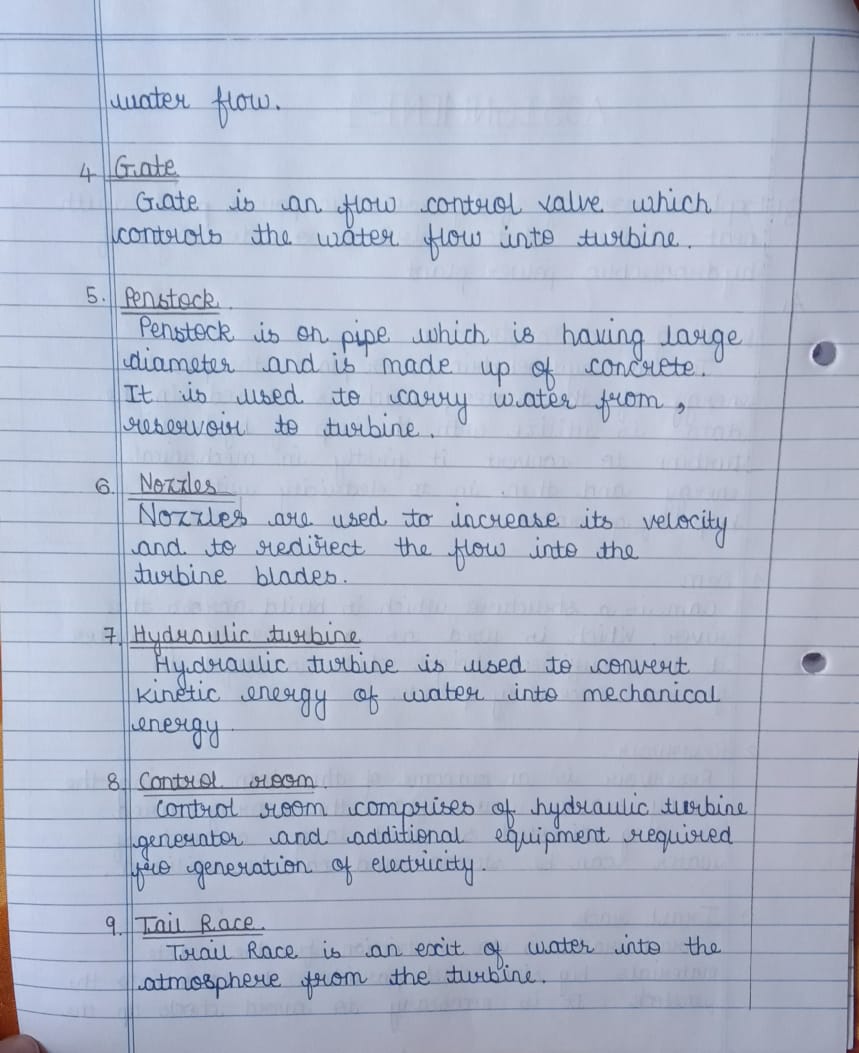 water flow.
4 Gate
Gate is an flow control valve which
controls the water flow into turbine.
5. Penstock.
Penstock is on pipe which is having large
diameter and is made up of concrete.
It is used to carry water from,
reservoir to turbine.
6. Nozzles
Nozzles are used to increase its velocity
and to redirect the flow into the
turbine blades.
7. Hydraulic turbine
Hydraulic turbine is used to convert
kinetic energy of water into mechanical
energy
8. Control room.
Control room comprises of hydraulic turbine
generator and additional equipment required
generation of electricity.
9. Tail Race.
Trail Race is an exit of water into the
atmosphere from the turbine.